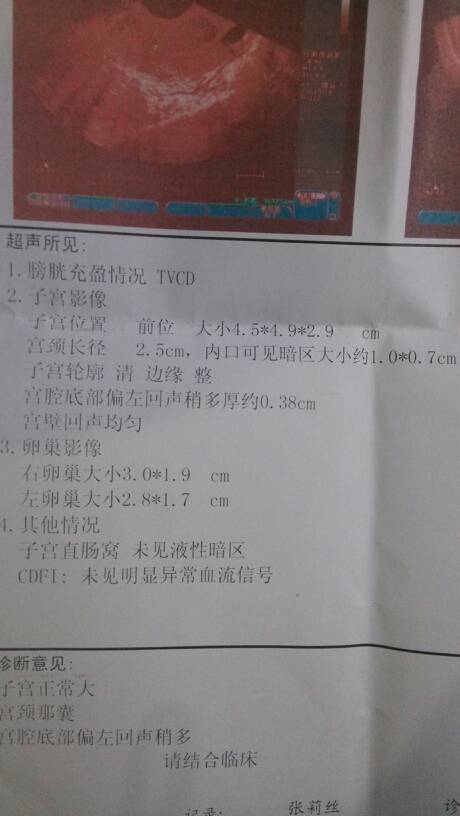 超声所见:
1.膀胱充盈情况 TVCD
2.子宫影像
子宫位置 前位 大小4.5*4.9*2.9 cm
宫颈长径 2.5cm，内口可见暗区大小约1.0*0.7cm
子宫轮廓 清 边缘 整
宫腔底部偏左回声稍多厚约0.38cm
宫壁回声均匀
3.卵巢影像
右卵巢大小3.0*1.9 cm
左卵巢大小2.8*1.7 cm
4.其他情况
子宫直肠窝 未见液性暗区
CDFI: 未见明显异常血流信号
诊断意见:
子宫正常大
宫颈那囊
宫腔底部偏左回声稍多
请结合临床
记录: 张莉丝 诊